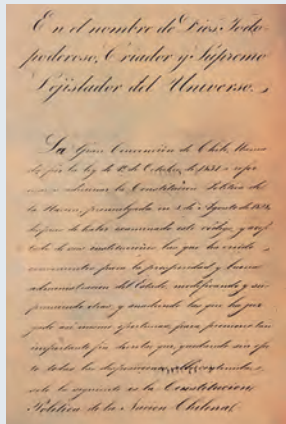 En el nombre de Dios Todo-
poderoso, Criador y Supremo
Lejislador del Universo.
La Gran Convención de Chile, llama-
da por la ley de 1º de Octubre de 1831 a refor-
mar o adicionar la Constitución Política de
la Nación, promulgada en 8 de Agosto de 1828,
después de haber examinado este código, y
de sus instituciones las que ha creido
convenientes para la prosperidad y buena
administración del Estado, modificando y su-
primiendo otras, y añadiendo las que ha juz-
gado así mismo oportunas para promover tan
importante fin, decreta que, quedando sin efec-
to todas las disposiciones allí contenidas,
solo la siguiente es la Constitución
Política de la Nación Chilena.